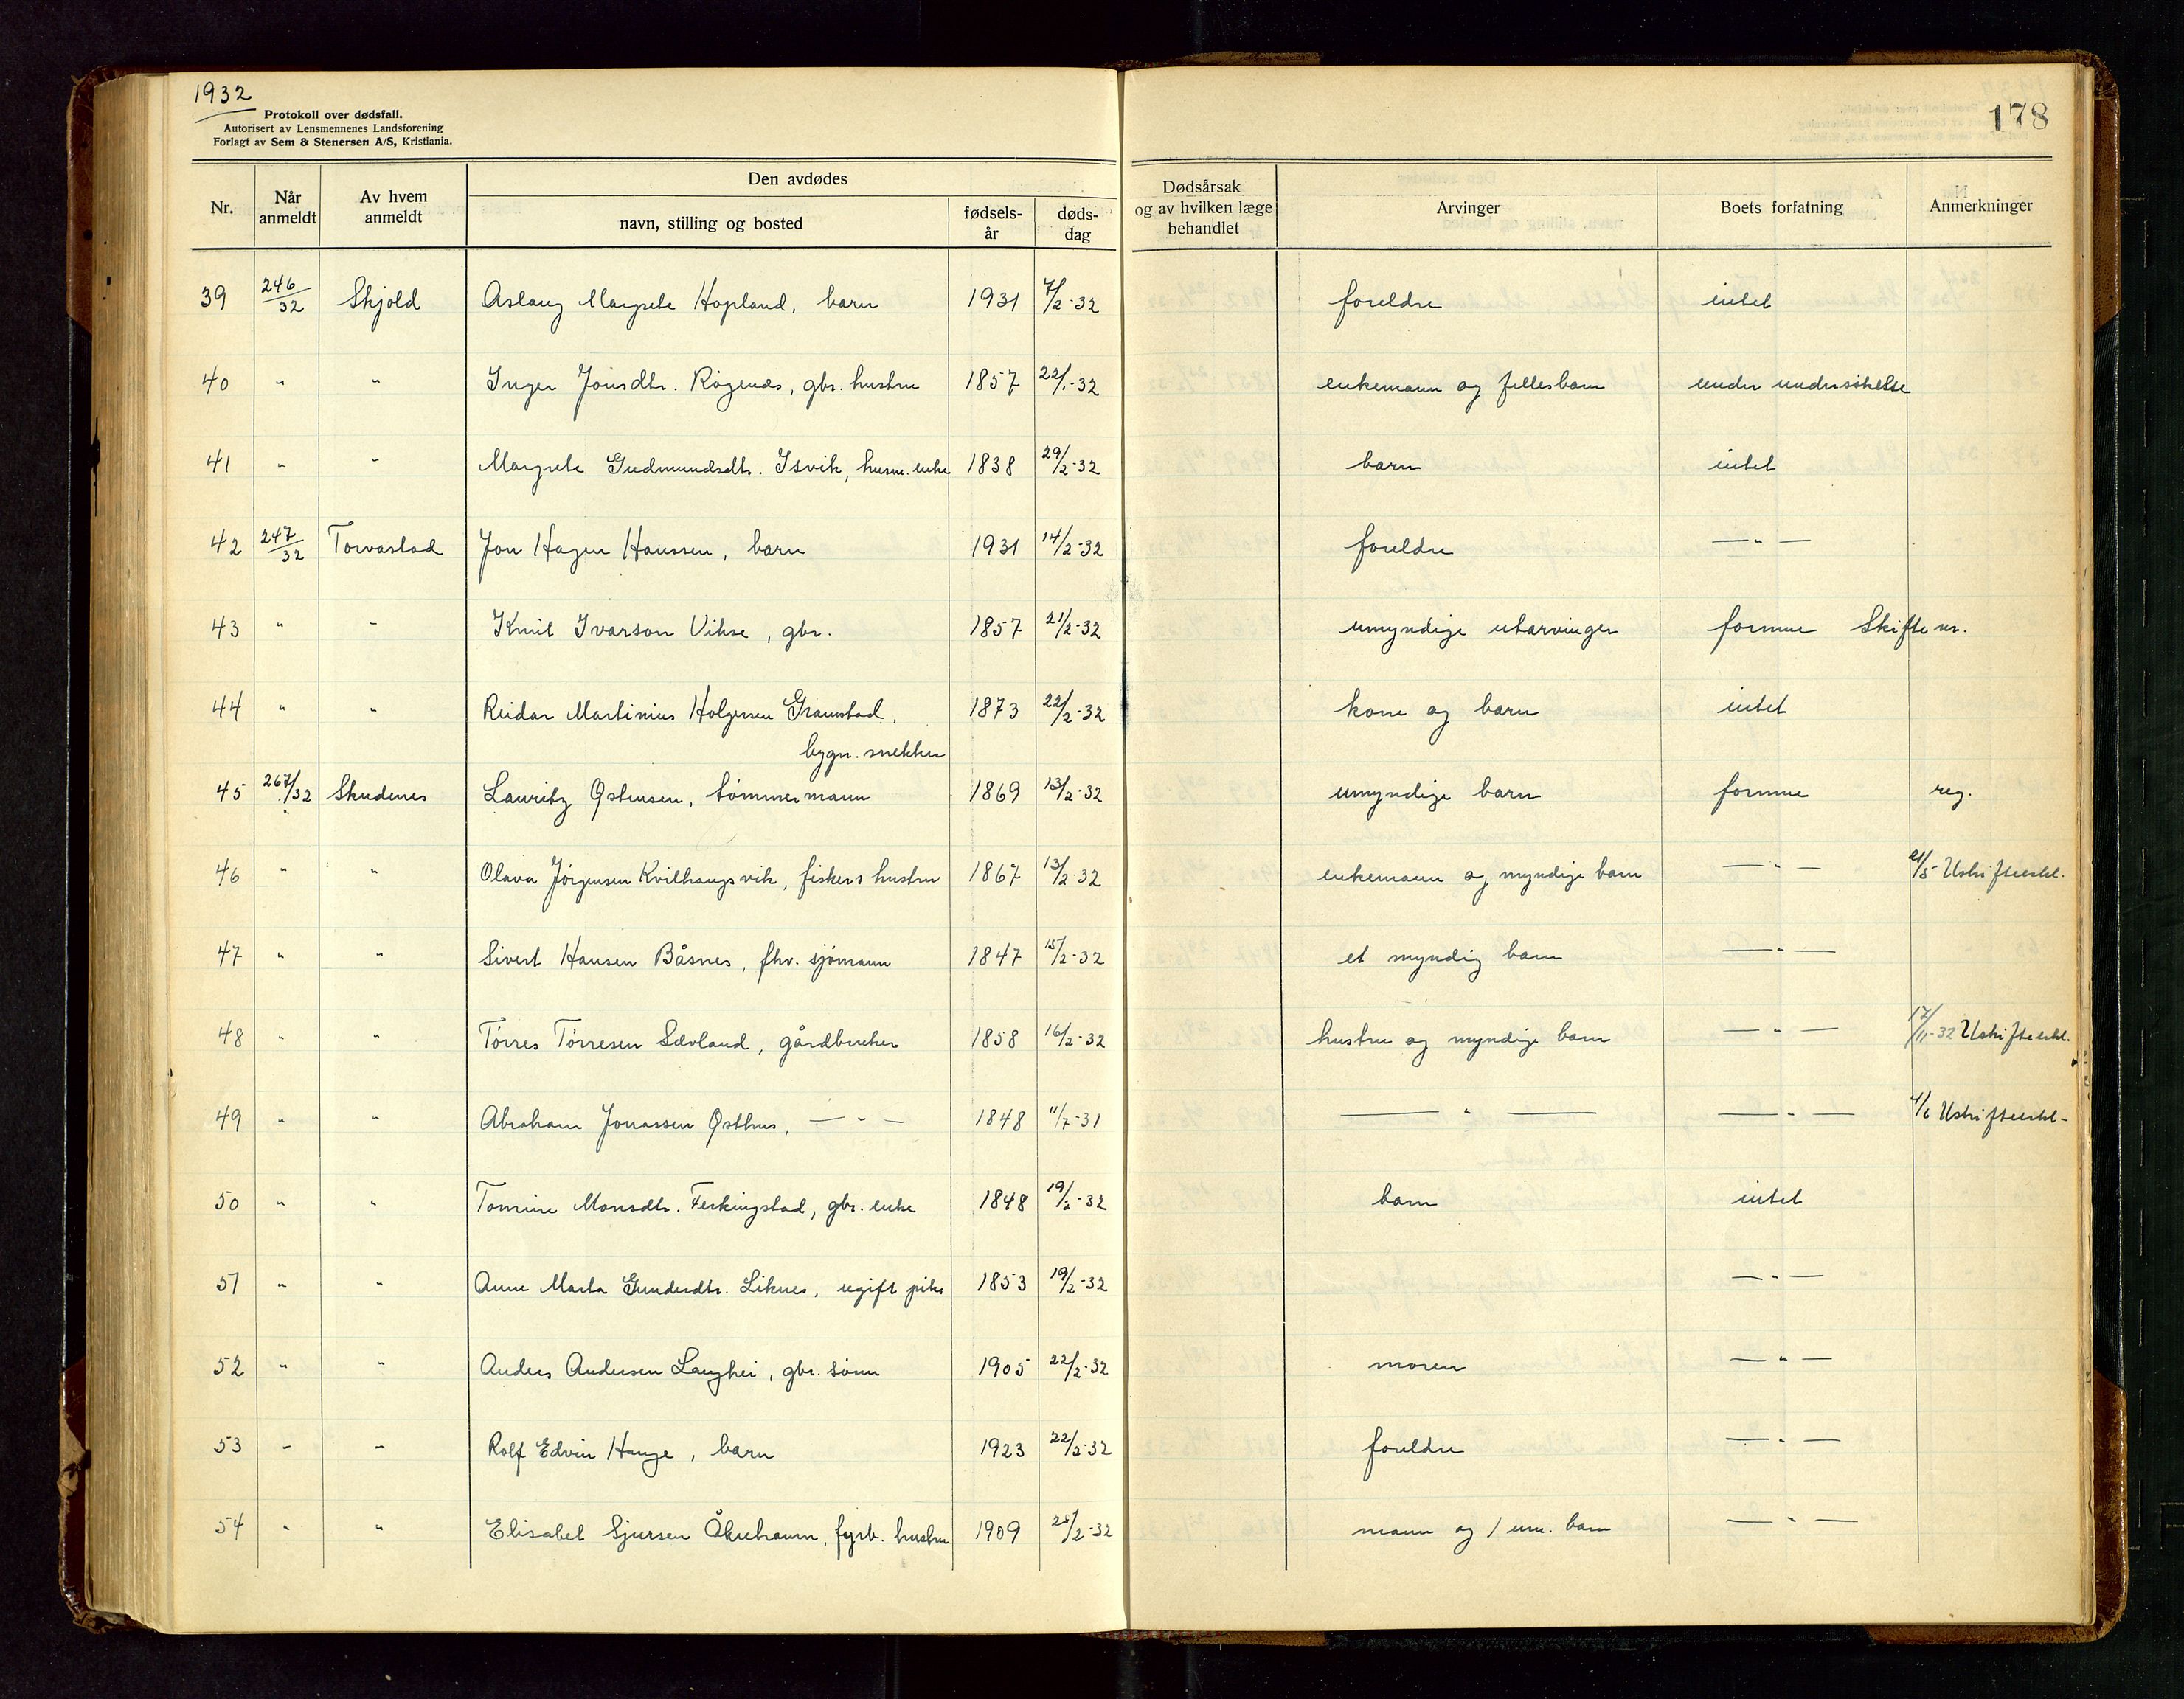 1932
Protokoll over dødsfall.
Autorisert av Lensmennenes Landsforening
Forlagt av Sem & Stenersen A/S, Kristiania.
178
Nr. Når anmeldt Av hvem anmeldt Den avdødes navn, stilling og bosted fødselsår dødsdag Dødsårsak og av hvilken læge behandlet Arvinger Boets forfatning Anmerkninger
39 246/32 Skjold Aslaug Margrete Hopland, barn 1931 7/2-32 foreldre intet
40 " " Inger Jonsdtr. Røgenes, gbr. hustru 1857 22/1-32 enkemann og fellesbarn under undersökelse
41 " " Margrete Gudmundsdtr. Isvik, husm. enke 1838 29/2-32 barn intet
42 247/32 Torvastad Jon Hagen Hanssen, barn 1931 14/2-32 foreldre — " —
43 " " Knut Ivarson Vikse, gbr. 1857 21/2-32 umyndige utarvinger formue Skifte nr.
44 " " Reidar Martinius Holgersen Granstad, 1873 22/2-32 kone og barn intet
bygn. snekker
45 267/32 Skudenes Lauritz Østensen, tømmermann 1869 13/2-32 umyndige barn formue reg.
46 " " Olava Jörgensen Kvilhaugsvik, fiskers hustru 1867 13/2-32 enkemann og myndige barn — " — 21/5 Uskifteerkl.
47 " " Sivert Hansen Båsnes, fhv. sjömann 1847 15/2-32 et myndig barn — " —
48 " " Törres Törresen Sævland, gårdbruker 1858 16/2-32 hustru og myndige barn — " — 17/11-32 Uskifteerkl.
49 " " Abraham Jonassen Østhus, — " — 1848 11/7-31 — " — — " — 4/6 Uskifteerkl-
50 " " Tomine Monsdtr. Ferkingstad, gbr. enke 1848 19/2-32 barn intet
51 " " Anne Marta Gundersdtr. Liknes, ugift pike 1853 19/2-32 — " —
52 " " Anders Andersen Langhei, gbr. sönn 1905 22/2-32 moren — " —
53 " " Rolf Edvin Hauge, barn 1923 22/2-32 foreldre — " —
54 " " Elisabet Sjursen Åkrehamn, fyrb. hustru 1909 25/2-32 mann og 1 um. barn — " —